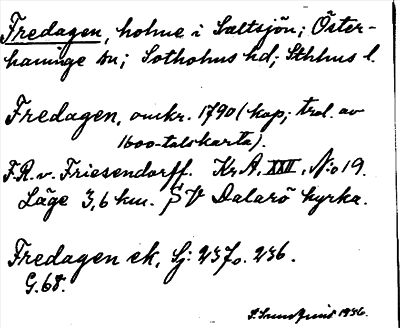 Fredagen, holme i Saltsjön; Öster-
haninge sn; Sotholms hd; Sthlms l.
Fredagen, omkr. 1790 (kop; trol. av
1600-talskarta).
F.R. v. Friesendorff. Kr.A. XXII, N:o 19.
Läge 3,6 km. SV Dalarö kyrka.
Fredagen ek, Sj: 237 o. 236.
G. 68.
1936.